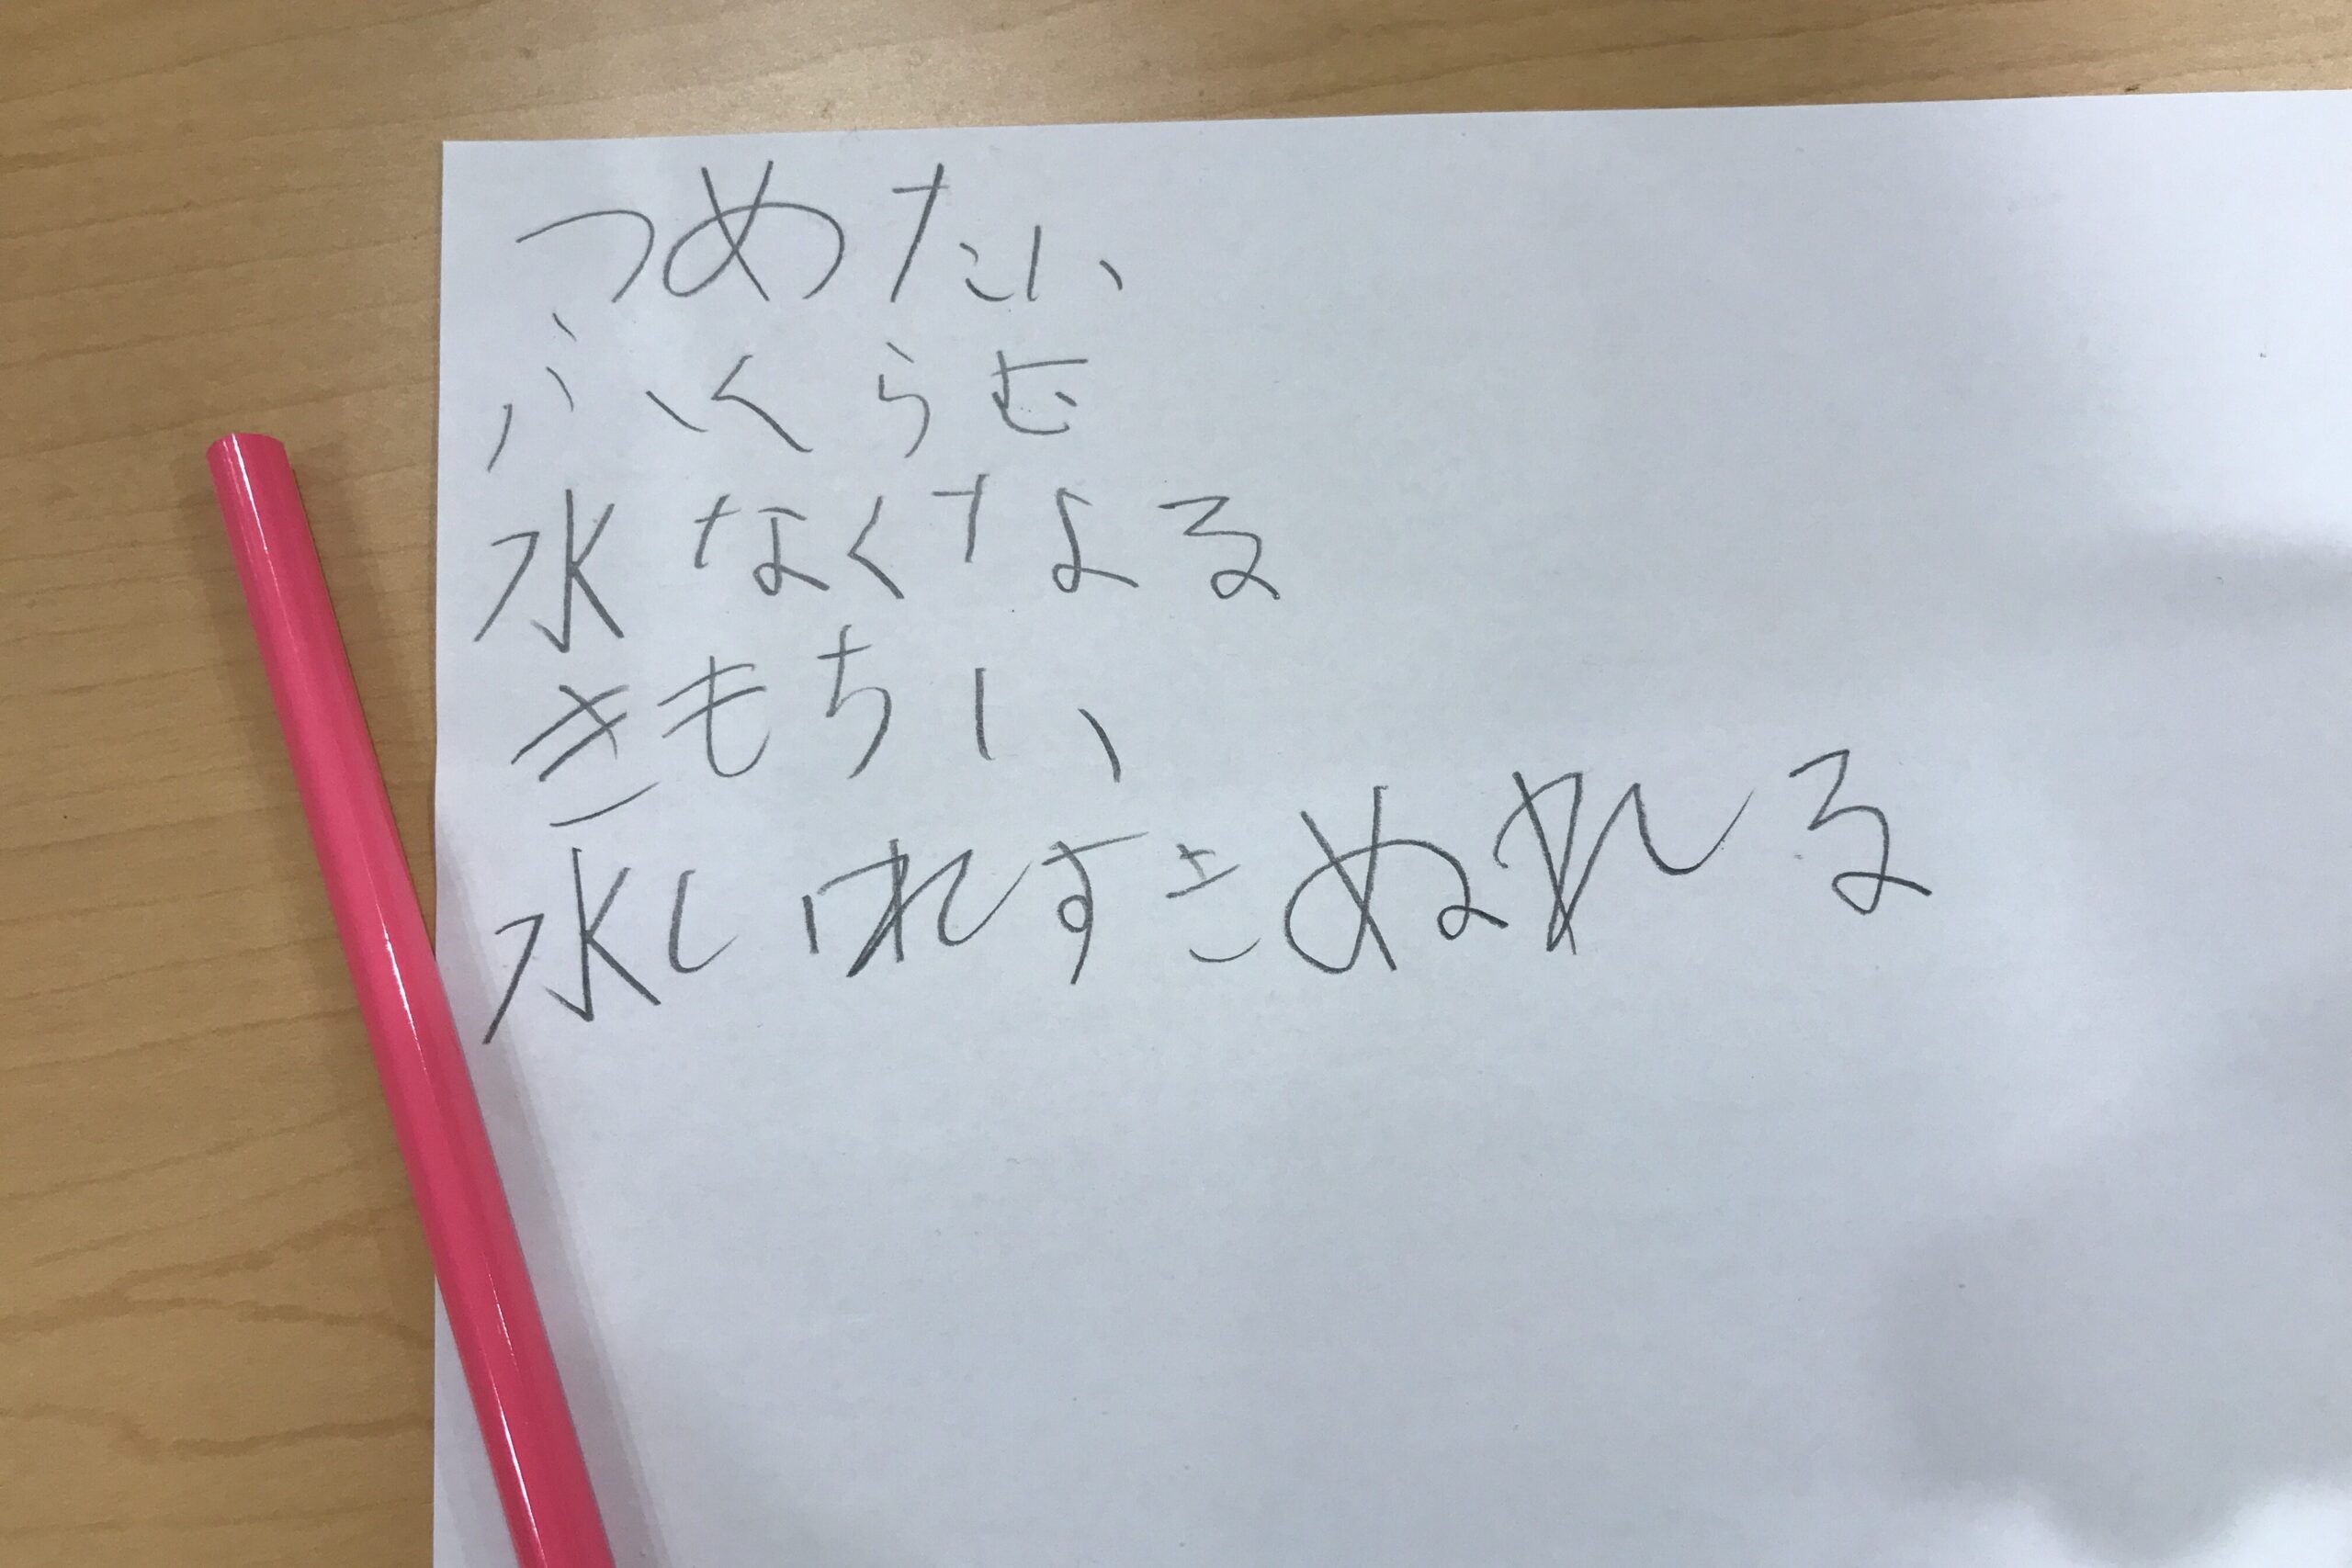 つめたい
ふくらむ
水なくなる
きもちい
水いれすぎぬれる